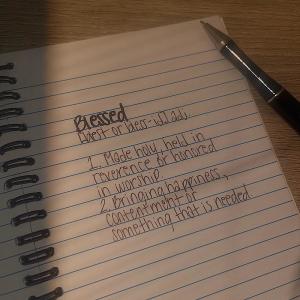 Blessed
blest or bless-id adj.
1. Made holy, held in
reverence or honored
in worship.
2. Bringing happiness,
contentment or
something that is needed